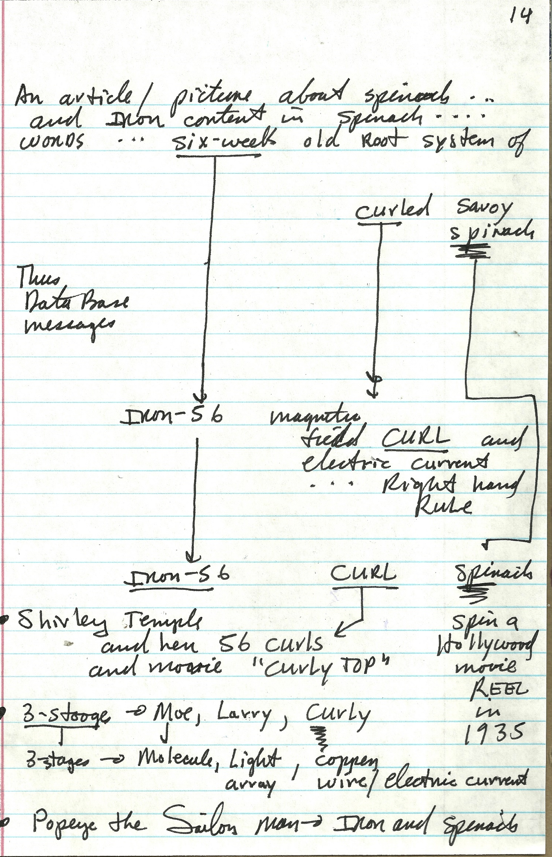 14
An article / picture about spinach ...
and Iron content in Spinach ....
words ... six-week old Root system of
curled Savoy
spinach
Thus
Data Base
messages
Iron-56 magnetic
field CURL and
electric current
.... Right hand
Rule
Iron-56 CURL Spinach
Shirley Temple
and her 56 curls
and movie "Curly TOP"
spin a
Hollywood
movie
REEL
in
1935
3-stooge → Moe, Larry, Curly
3-stages → Molecule, Light array, copper wire/electric current
Popeye the Sailor Man → Iron and Spinach